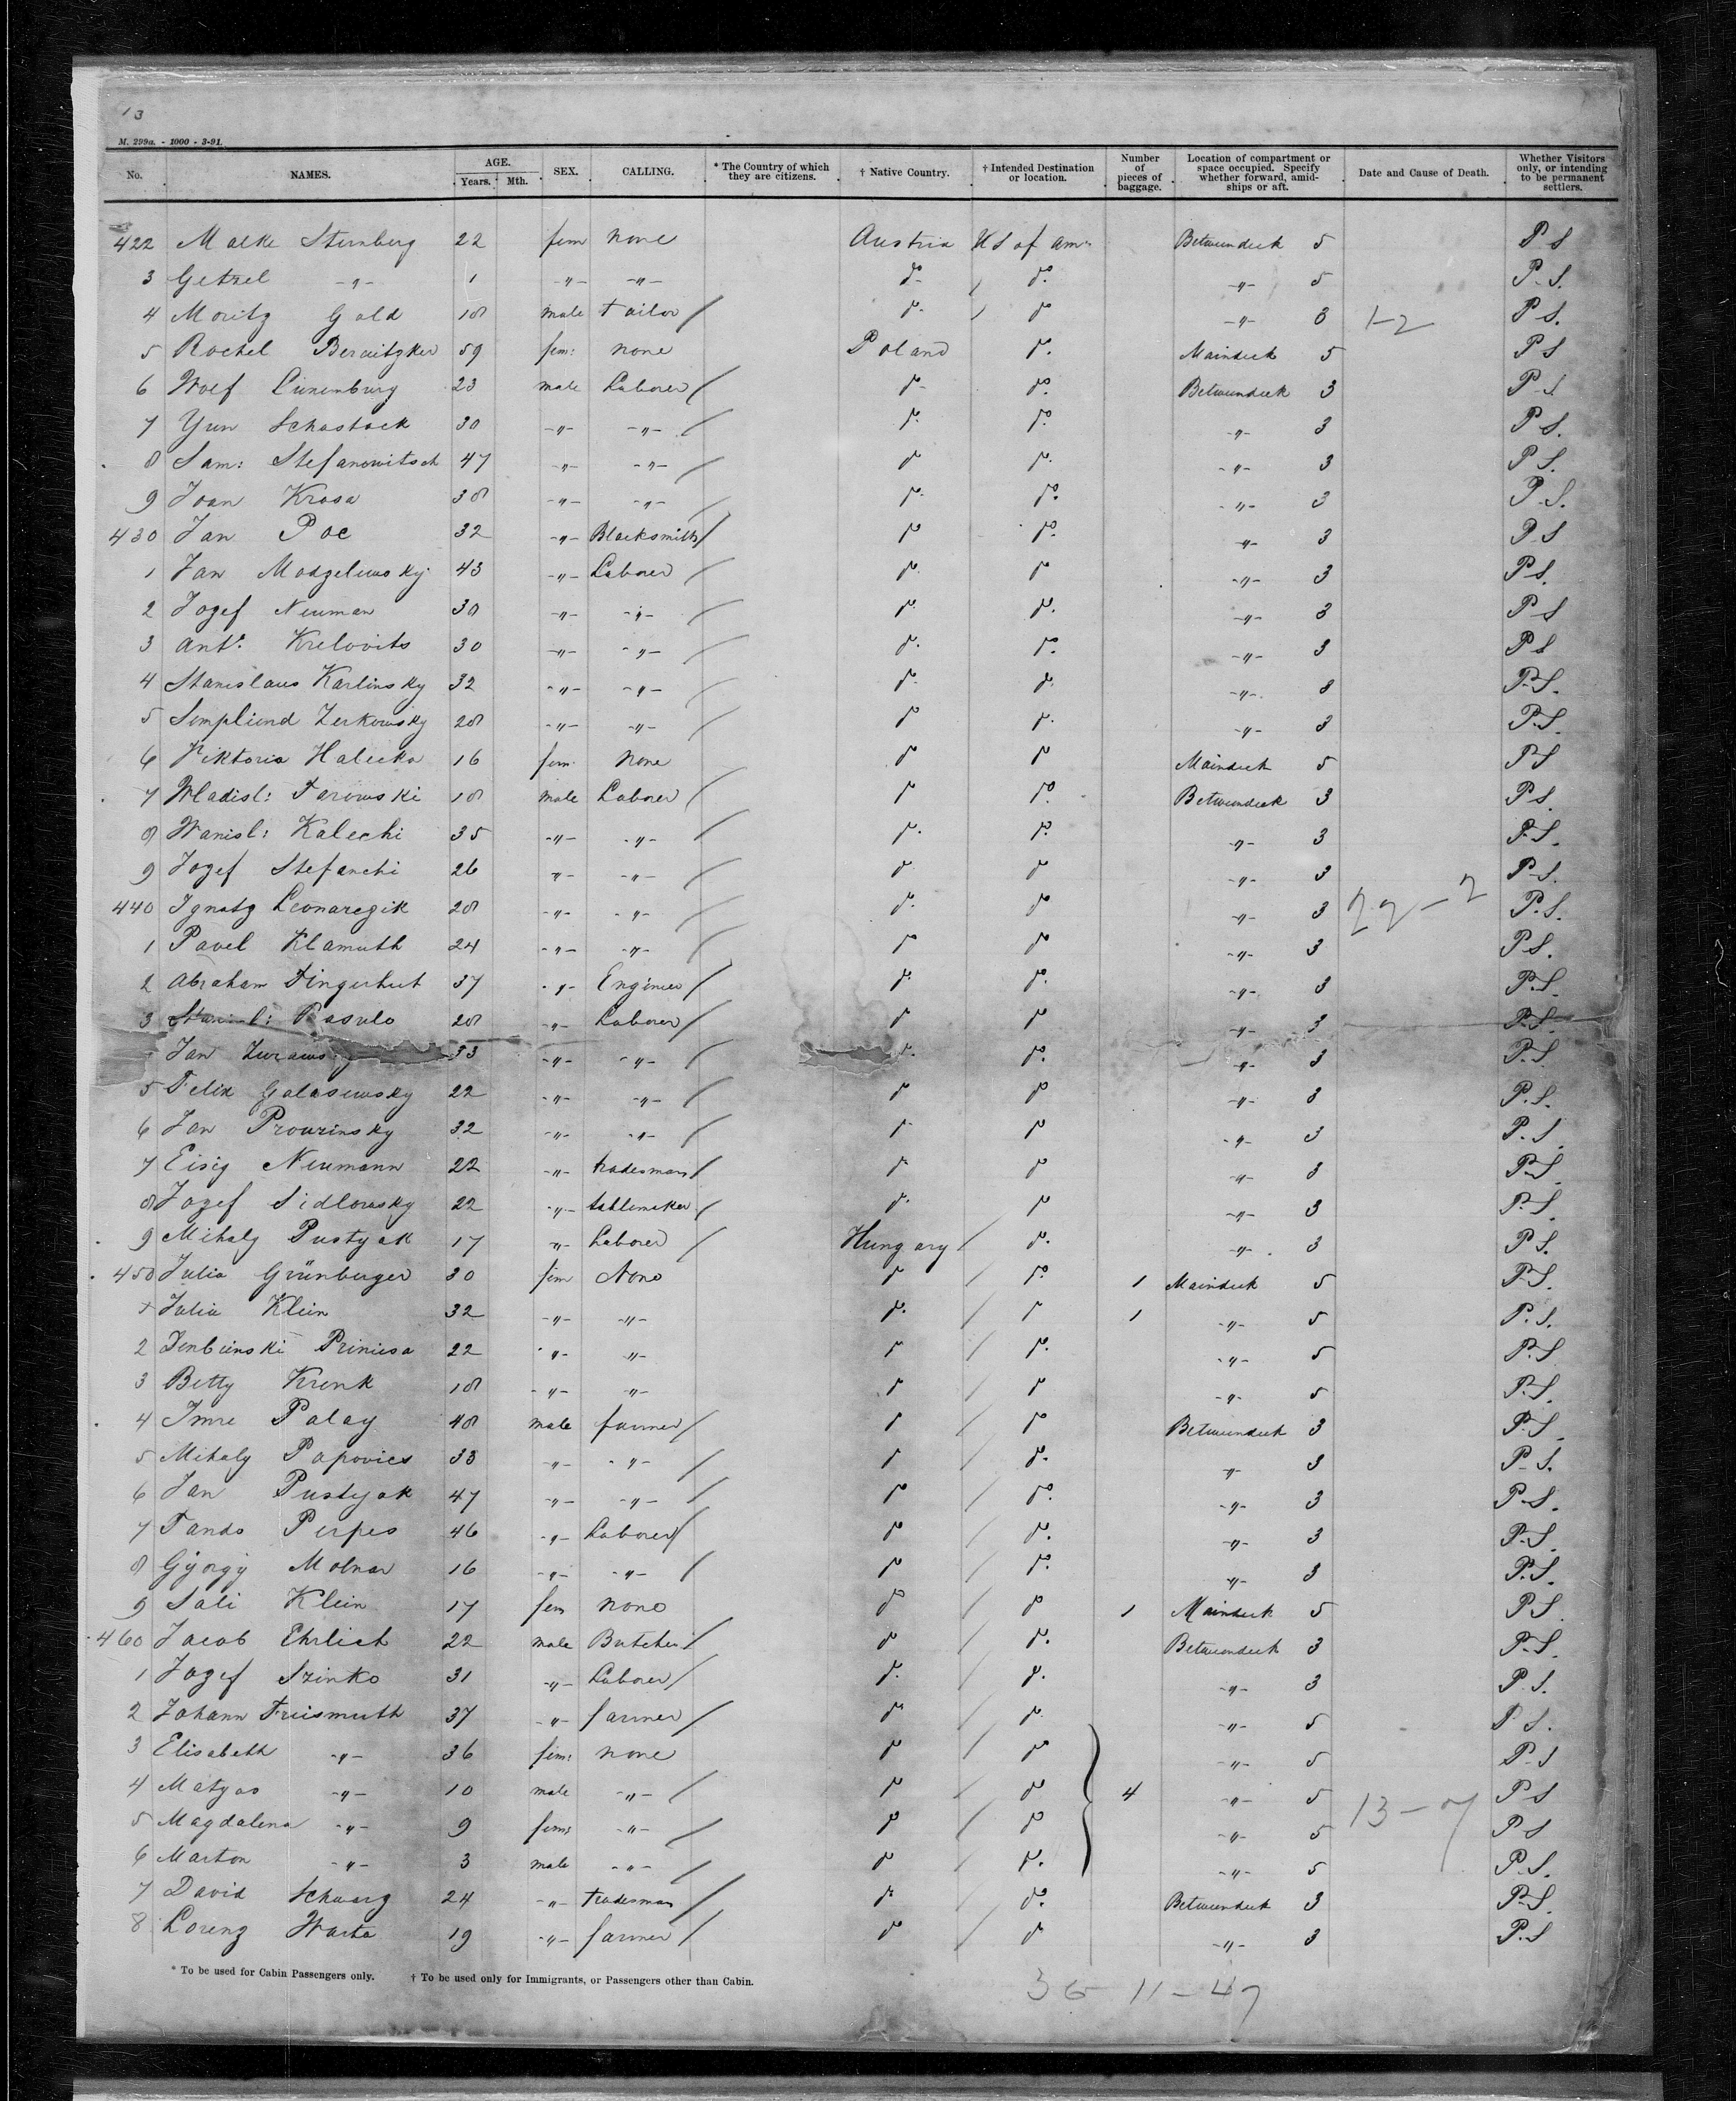 13
M. 299a. - 1000 - 3-91.
No. NAMES. AGE. Years. Mth. SEX. CALLING. * The Country of which they are citizens. † Native Country. † Intended Destination or location. Number of pieces of baggage. Location of compartment or space occupied. Specify whether forward, amidships or aft. Date and Cause of Death. Whether Visitors only, or intending to be permanent settlers.
422 Malke Sternberg 22 fem none Austria US of am: Betweendeck 5 P S
3 Getzel -"- 1 -"- -"- do do -"- 5 P.S.
4 Moritz Gold 18 male tailor / do do -"- 3 1-2 P S.
5 Rochel 59 fem: none Poland do Maindeck 5 P S
6 Wolf Lünenburg 23 male Laborer / do do Betweendeck 3 P S
7 Yun Schostack 30 -"- -"- / do do -"- 3 P S.
8 Sam: Stefanowitsch 47 -"- -"- / do do -"- 3 P S.
9 Joan Krosa 38 -"- -"- / do do -"- 3 P.S.
430 Jan Poe 32 -"- Blacksmith / do do -"- 3 P S
1 Jan Modzelewsky 43 -"- Laborer / do do -"- 3 P S.
2 Jozef Neuman 30 -"- -"- / do do -"- 3 P S
3 Ant: Krelovits 30 -"- -"- / do do -"- 3 P S
4 Stanislaus Karlinsky 32 -"- -"- / do do -"- 3 P.S.
5 Zerkowsky 28 -"- -"- / do do -"- 3 P.S.
6 Viktoria Halecka 16 fem. none do do Maindeck 5 P S
7 Wladisl: Tarowski 18 male Laborer / do do Betweendeck 3 P S.
8 Wanisl: Kalechi 35 -"- -"- / do do -"- 3 P.S.
9 Jozef Stefanchi 26 -"- -"- / do do -"- 3 P.S.
440 Ignatz Leonarczik 28 -"- -"- / do do -"- 3 22-2 P.S.
1 Pavel Klamuth 24 -"- -"- / do do -"- 3 P S.
2 Abraham Fingerhut 37 -"- Engineer / do do -"- 3 P.S.
3 Pasulo 28 -"- Laborer / do do -"- 3 P.S.
Jan 33 -"- -"- / do do -"- 3 P.S.
5 Felix Galasewsky 22 -"- -"- / do do -"- 3 P.S.
6 Jan Prourinsky 32 -"- -"- / do do -"- 3 P.S.
7 Eisig Neumann 22 -"- tradesman / do do -"- 3 P.S.
8 Jozef Sidlowsky 22 -"- tablemaker / do do -"- 3 P.S.
9 Mihaly Pustyak 17 -"- Laborer / Hungary / do -"- 3 P S.
450 Julia Grünberger 30 fem None do / do 1 Maindeck 5 P.S.
1 Julia Klein 32 -"- -"- do / do 1 -"- 5 P.S.
2 22 -"- -"- do / do -"- 5 P.S
3 Betty Krenk 18 -"- -"- do / do -"- 5 P.S.
4 Imre Palay 48 male farmer / do / do Betweendeck 3 P.S.
5 Mihaly Popovics 33 -"- -"- / do / do -"- 3 P.S.
6 Jan Pustyak 47 -"- -"- / do / do -"- 3 P.S.
7 Perpes 46 -"- Laborer / do / do -"- 3 P.S.
8 György Molnar 16 -"- -"- / do / do -"- 3 P.S.
9 Sali Klein 17 fem none do / do 1 Maindeck 5 P S
460 Jacob Ehrlich 22 male Butcher / do / do Betweendeck 3 P.S.
1 Jozef Szinko 31 -"- Laborer / do / do -"- 3 P.S.
2 Johann Freismuth 37 -"- farmer / do / do -"- 5 P S.
3 Elisabeth -"- 36 fem: none do / do -"- 5 P.S
4 Matyas -"- 10 male -"- / do / do 4 -"- 5 13-7 P S
5 Magdalena -"- 9 fem: -"- / do / do -"- 5 P S
6 Marton -"- 3 male -"- / do / do -"- 5 P.S.
7 David Schwarz 24 -"- tradesman / do / do Betweendeck 3 P.S.
8 Lorenz Warta 19 -"- farmer / do / do -"- 3 P.S
* To be used for Cabin Passengers only. † To be used only for Immigrants, or Passengers other than Cabin.
36 11-47